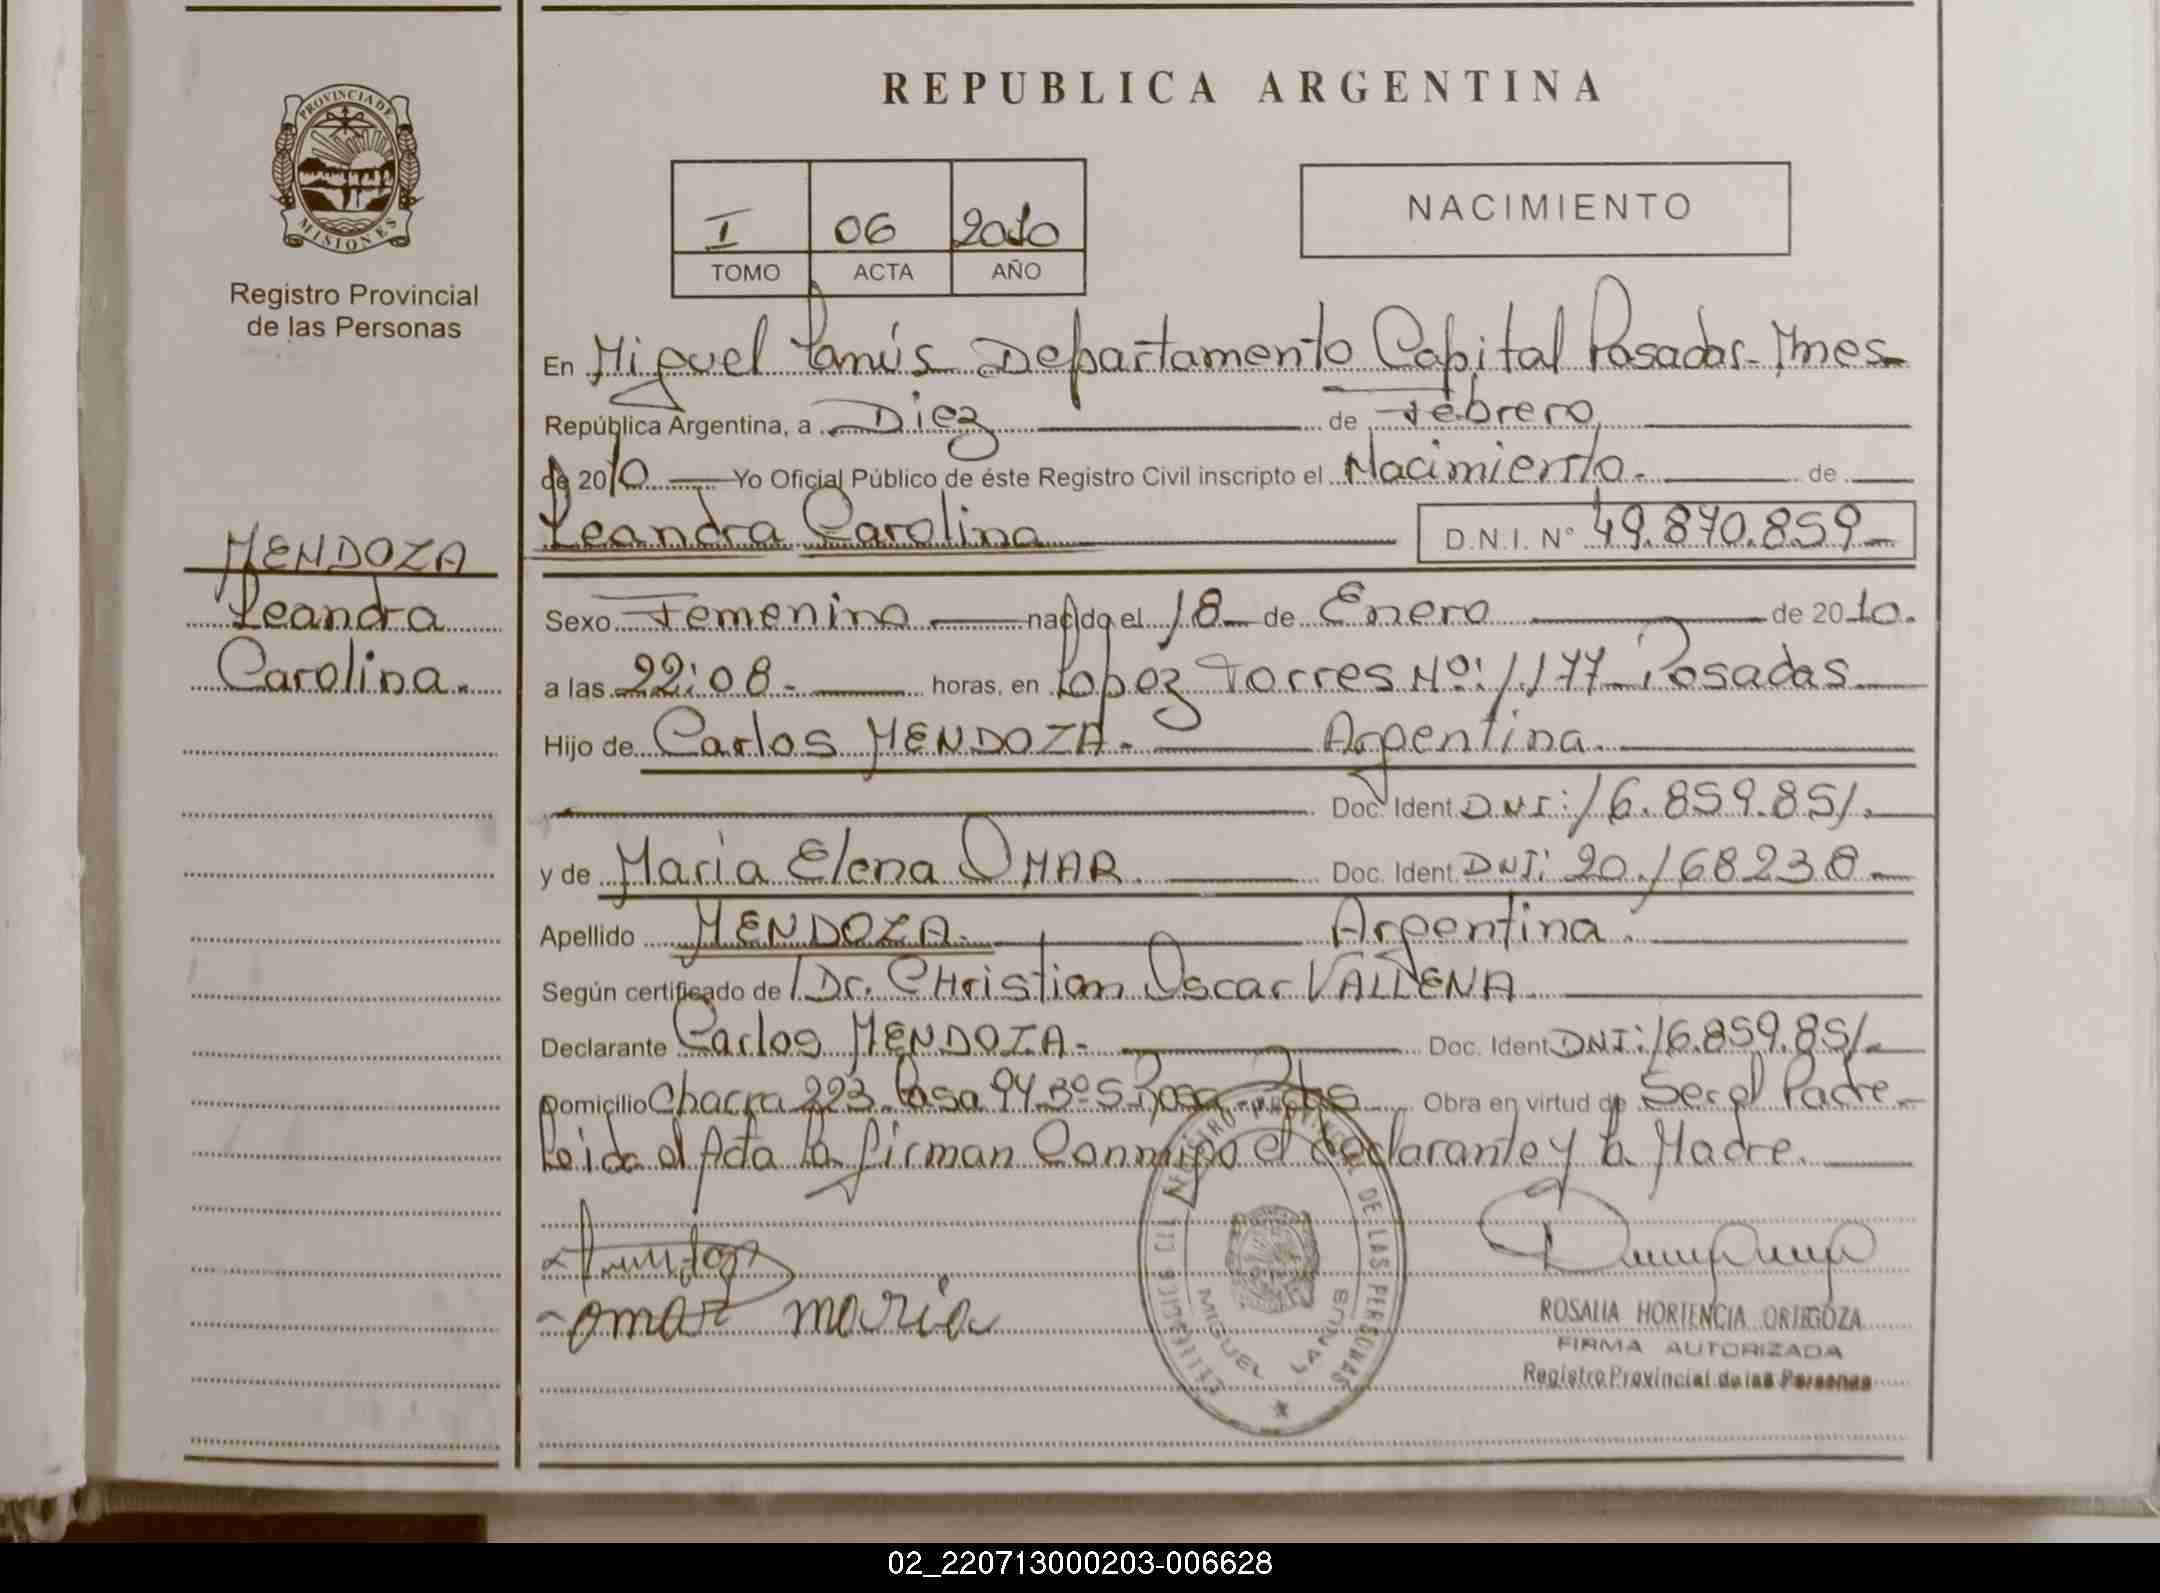 REPUBLICA ARGENTINA
PROVINCIA DE
MISIONES
Registro Provincial
de las Personas
I 06 2010
TOMO ACTA AÑO
NACIMIENTO
En Miguel Lanús Departamento Capital Posadas - Mnes
República Argentina, a Diez de Febrero
de 2010 Yo Oficial Público de éste Registro Civil inscripto el Nacimiento. de
Leandra Carolina D.N.I. N° 49.870.859
MENDOZA
Leandra
Carolina.
Sexo Femenino nacido el 18 de Enero de 2010.
a las 22:08 - horas, en Lopez Torres Nº: 1177 Posadas
Hijo de Carlos MENDOZA. Argentina.
Doc. Ident. DNI: 16.859.851.
y de Maria Elena OMAR. Doc. Ident. DNI: 20.168238
Apellido MENDOZA. Argentina.
Según certificado de Dr. CHristian Oscar VALLENA
Declarante Carlos MENDOZA - Doc. Ident DNI: 16.859.851.
Domicilio Chacra 223 Casa 94 Bº S Rosa - Pdas Obra en virtud de Ser el Padre
Leida el Acta la firman Conmigo el declarante y la Madre.
omar maria
REGISTRO PROVINCIAL DE LAS PERSONAS
MIGUEL LANUS
ROSALIA HORTENCIA ORTEGOZA
FIRMA AUTORIZADA
Registro Provincial de las Personas
02_220713000203-006628